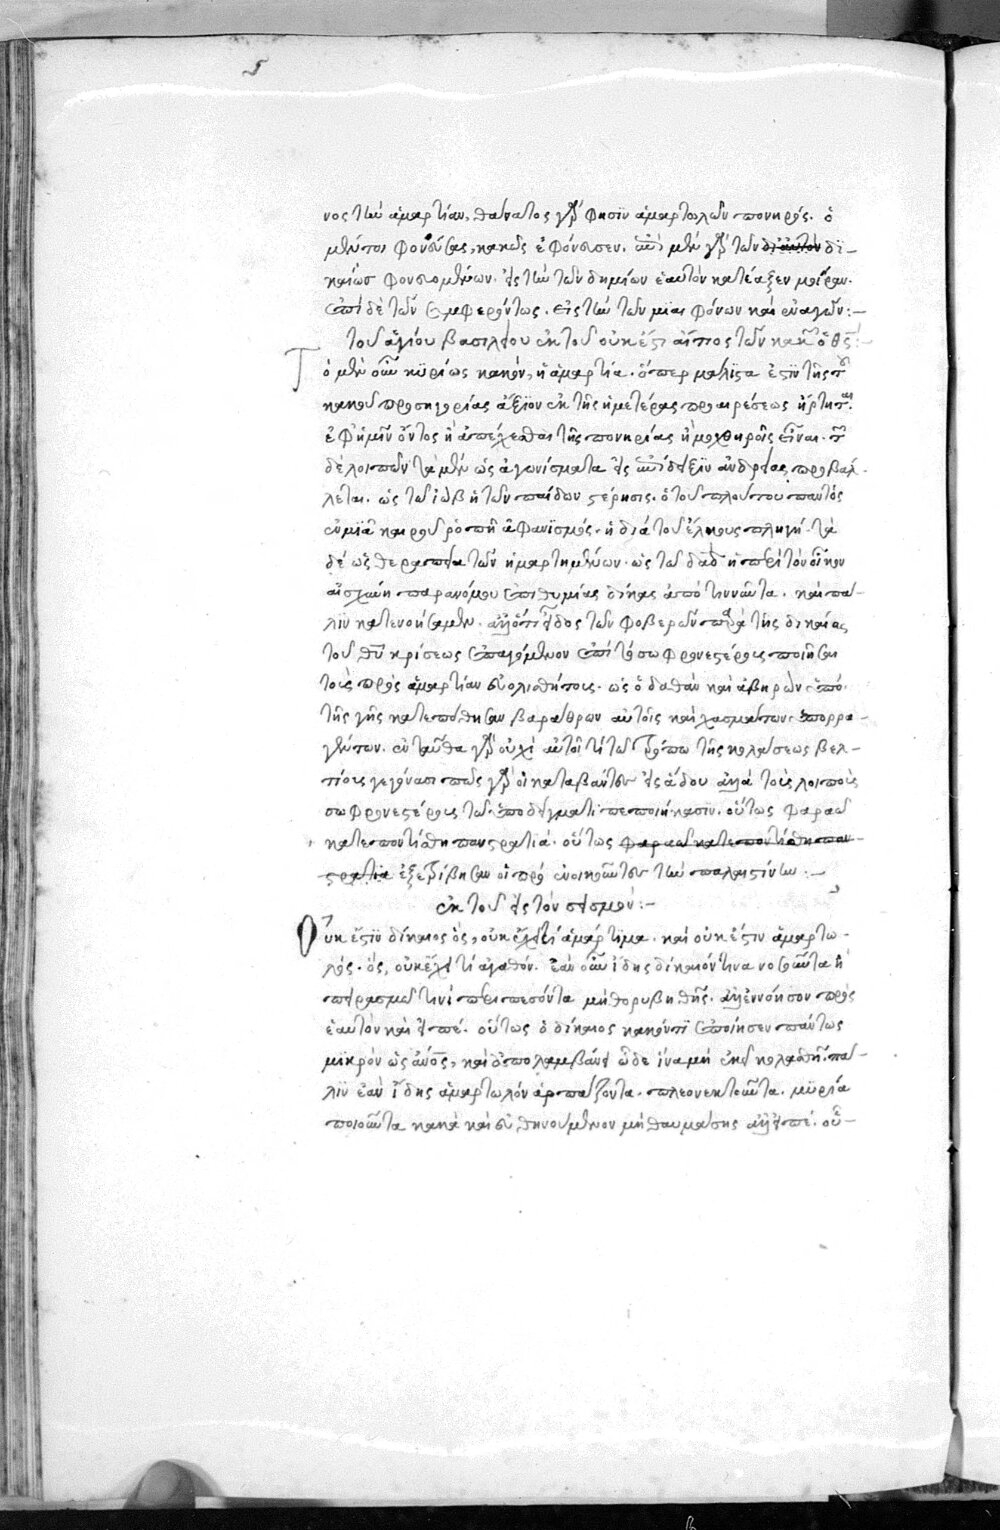 νος τὴν ἁμαρτίαν, θάνατος γὰρ φησὶν ἁμαρτωλῶν πονηρός. ὁ
μέντοι φονεύσας, κακῶς ἐφόνευσεν. ἐπεὶ μὴ γὰρ τῶν δι
καίως φονευομένων. εἰς τὴν τῶν δημίων ἑαυτὸν κατέαξεν μοῖραν.
ἐπὶ δὲ τῶν εἰς τὴν τῶν μιαιφόνων καὶ ἐναγῶν:–
τοῦ ἁγίου βασιλείου ἐκ τοῦ οὐκ ἔστι αἴτιος τῶν κακῶν ὁ θς:–
Τὸ μὲν οὖν κυρίως κακόν, ἡ ἁμαρτία. ὅπερ μάλιστα ἐστὶν τῆς τοῦ
κακοῦ προσηγορίας ἄξιον ἐκ τῆς ἡμετέρας προαιρέσεως ἤρτηται.
ἐφ' ἡμῖν ὄντος ἢ ἀπέχεσθαι τῆς πονηρίας ἢ μοχθηροῖς εἶναι. τῶν
δὲ λοιπῶν τὰ μὲν ὡς ἀγωνίσματα εἰς ἐπίδειξιν ἀνδρείας προβάλ
λεται. ὡς τῶ ἰὼβ ἡ τῶν παίδων στέρησις. ὁ τοῦ πλούτου παντὸς
ἐν μιᾶ καιροῦ ῥοπῆ ἀφανισμός. ἡ διὰ τοῦ ἕλκους πληγή. τὰ
δὲ ὡς θεραπεία τῶν ἡμαρτημένων. ὡς τῶ δαδ ἡ περὶ τὸν οἶκον
αἰσχύνη παρανόμου ἐπιθυμίας δίκας ἀποτιννῦντα. καὶ πά–
λιν κατενοήσαμεν. ἄλλό τι εἶδος τῶν φοβερῶν παρὰ τῆς δικαίας
τοῦ θυ κρίσεως ἐπαγόμενον ἐπὶ τὸ σωφρονεστέρους ποιῆσαι
τοὺς πρὸς ἁμαρτίαν εὐολίσθητους. ὡς ὁ δαθὰν καὶ ἀβηρὼν ὑπὸ
τῆς γῆς κατεπόθησαν βαράθρων αὐτοῖς καὶ χασμάτων ὑπορρα–
γέντων. ἐνταῦθα γὰρ οὐχὶ αὐτοὶ τῶ τρόπω τῆς κολάσεως βελ–
τίους γεγόνασι πῶς γὰρ οἱ καταβάντες εἰς ἅδου ἀλλὰ τοὺς λοιποὺς
σωφρονεστέρους τῶ ὑποδείγματι πεποιήκασιν. οὕτως φαραὼ
κατεποντίσθη πανστρατιά. οὕτως φαραὼ κατεποντίσθη παν–
στρατιὰ ἐξετρίβησαν οἱ πρὸ ἐνοικοῦντες τὴν παλαιστίνην:–
ἐκ τοῦ εἰς τὸν σεισμόν:–
Οὐκ ἔστιν δίκαιος ὅς, οὐκ ἔχει τί ἁμάρτημα. καὶ οὐκ ἔστιν ἁμαρτω–
λός. ὅς, οὐκ ἔχει τί ἀγαθόν. ἐὰν οὖν ἴδης δίκαιόν τινα νοσοῦντα ἢ
πειρασμῶ τινὶ περιπεσόντα μὴ θορυβηθῆς. ἀλλ' ἐννόησον πρὸς
ἑαυτὸν καὶ εἰπέ. οὕτως ὁ δίκαιος κακόν τι ἐποίησεν πάντως
μικρὸν ὡς ἄνος, καὶ ἀπολαμβάνει ὧδε ἵνα μὴ ἐκεῖ κολασθῆ. πά–
λιν ἐὰν ἴδης ἁμαρτωλὸν ἁρπάζοντα. πλεονεκτοῦντα. μυρία
ποιοῦντα κακὰ καὶ εὐθηνούμενον μὴ θαυμάσης ἀλλ' εἰπέ. οὗ–